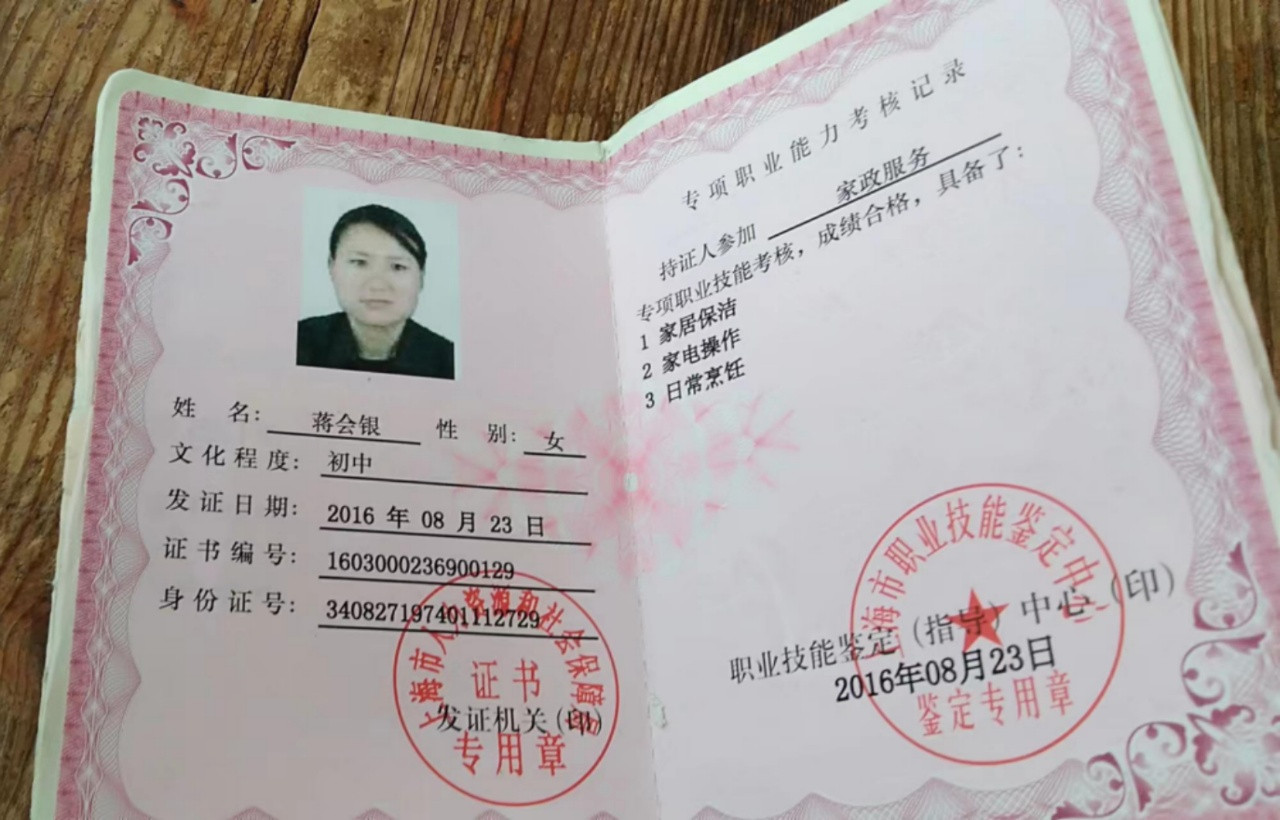 姓 名： 蒋会银 性 别： 女
文化程度： 初中
发证日期： 2016 年 08 月 23 日
证书编号： 1603000236900129
身份证号： 340827197401112729
上海市人力资源和社会保障局
证书
发证机关（印）
专用章
专项职业能力考核记录
持证人参加 家政服务
专项职业技能考核，成绩合格，具备了：
1 家居保洁
2 家电操作
3 日常烹饪
上海市职业技能鉴定中心
职业技能鉴定（指导）中心（印）
2016年08月23日
鉴定专用章